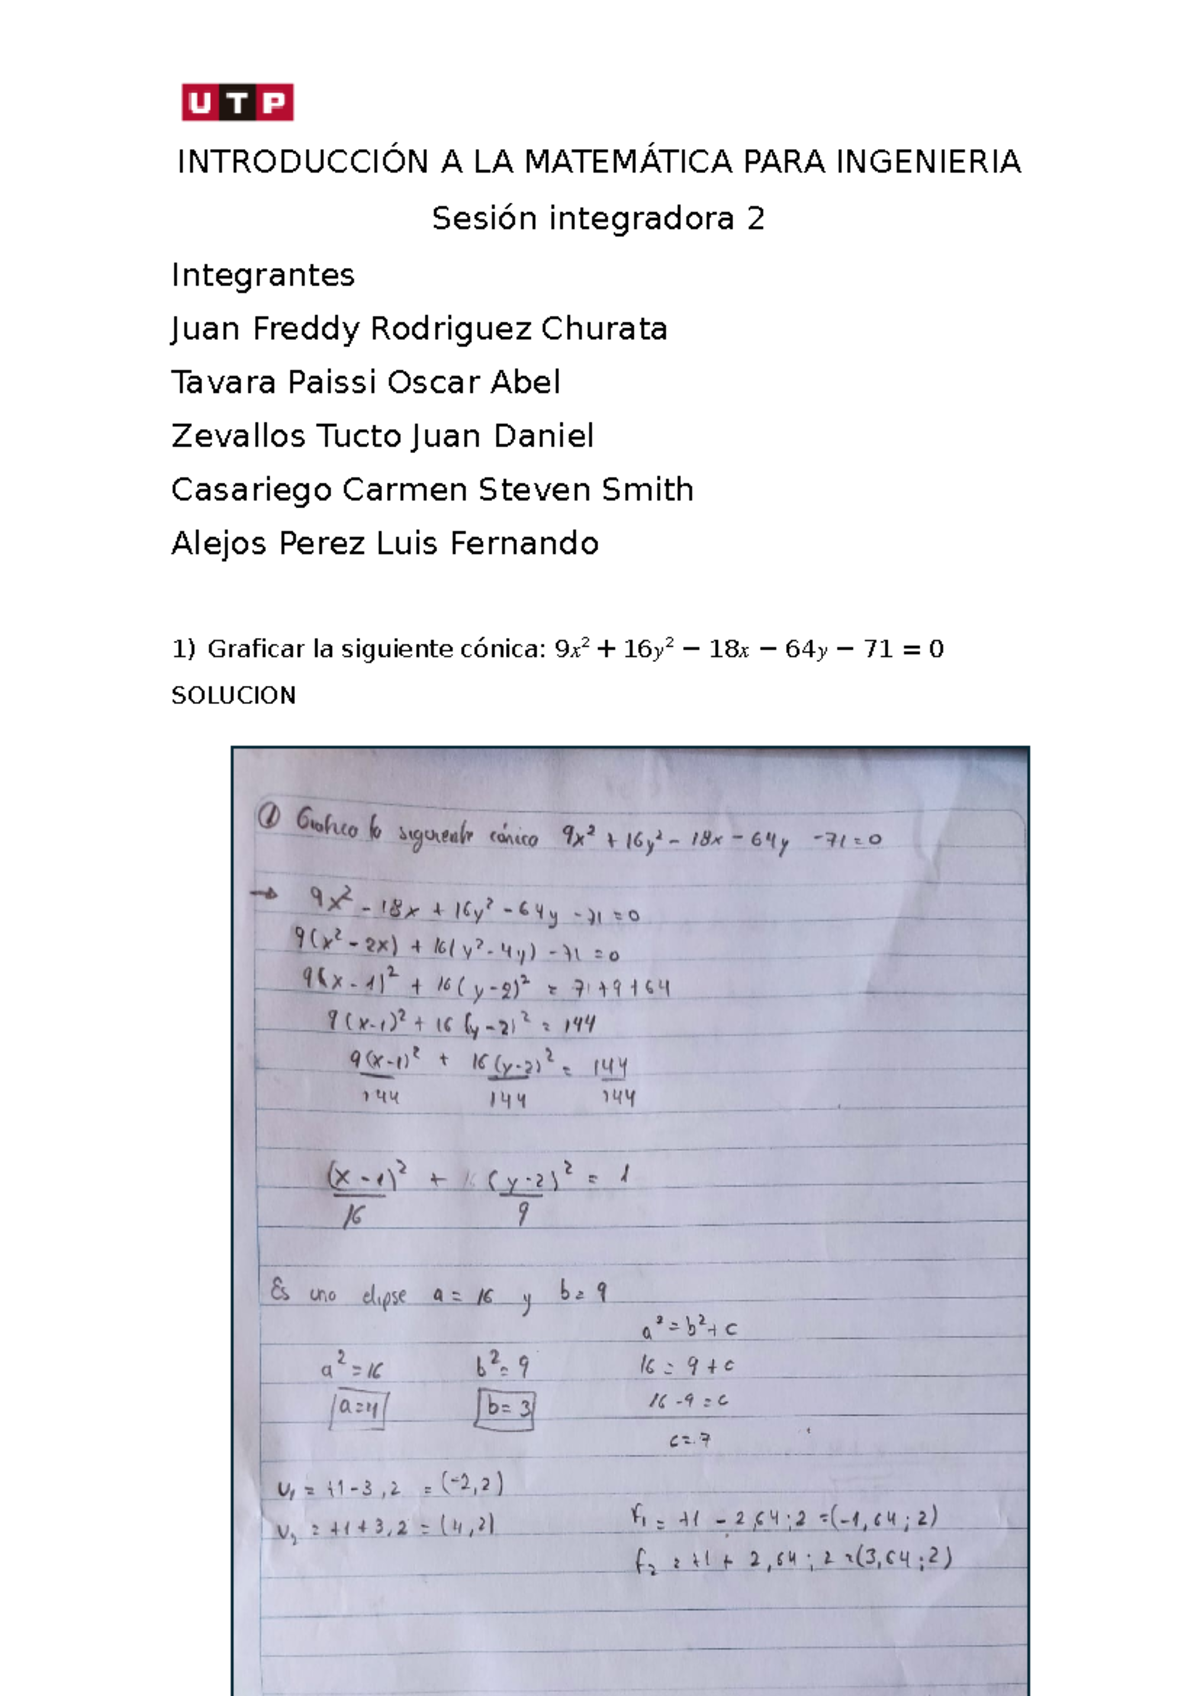 UTP
INTRODUCCIÓN A LA MATEMÁTICA PARA INGENIERIA
Sesión integradora 2
Integrantes
Juan Freddy Rodriguez Churata
Tavara Paissi Oscar Abel
Zevallos Tucto Juan Daniel
Casariego Carmen Steven Smith
Alejos Perez Luis Fernando
1) Graficar la siguiente cónica: 9x² + 16y² − 18x − 64y − 71 = 0
SOLUCION
① Grafico la siguiente cónica 9x² + 16y² - 18x - 64y - 71 = 0
→ 9x² - 18x + 16y² - 64y - 71 = 0
9(x² - 2x) + 16(y² - 4y) - 71 = 0
9(x - 1)² + 16(y - 2)² = 71 + 9 + 64
9(x-1)² + 16(y-2)² = 144
9(x-1)²/144 + 16(y-2)²/144 = 144/144
(x - 1)²/16 + (y-2)²/9 = 1
Es una elipse a = 16 y b = 9
a² = b² + c
a² = 16 b² = 9 16 = 9 + c
a=4 b= 3 16 - 9 = c
c = 7
V₁ = +1 - 3, 2 = (-2, 2)
V₂ = +1 + 3, 2 = (4, 2)
F₁ = +1 - 2,64 ; 2 = (-1,64 ; 2)
F₂ = +1 + 2,64 ; 2 = (3,64 ; 2)